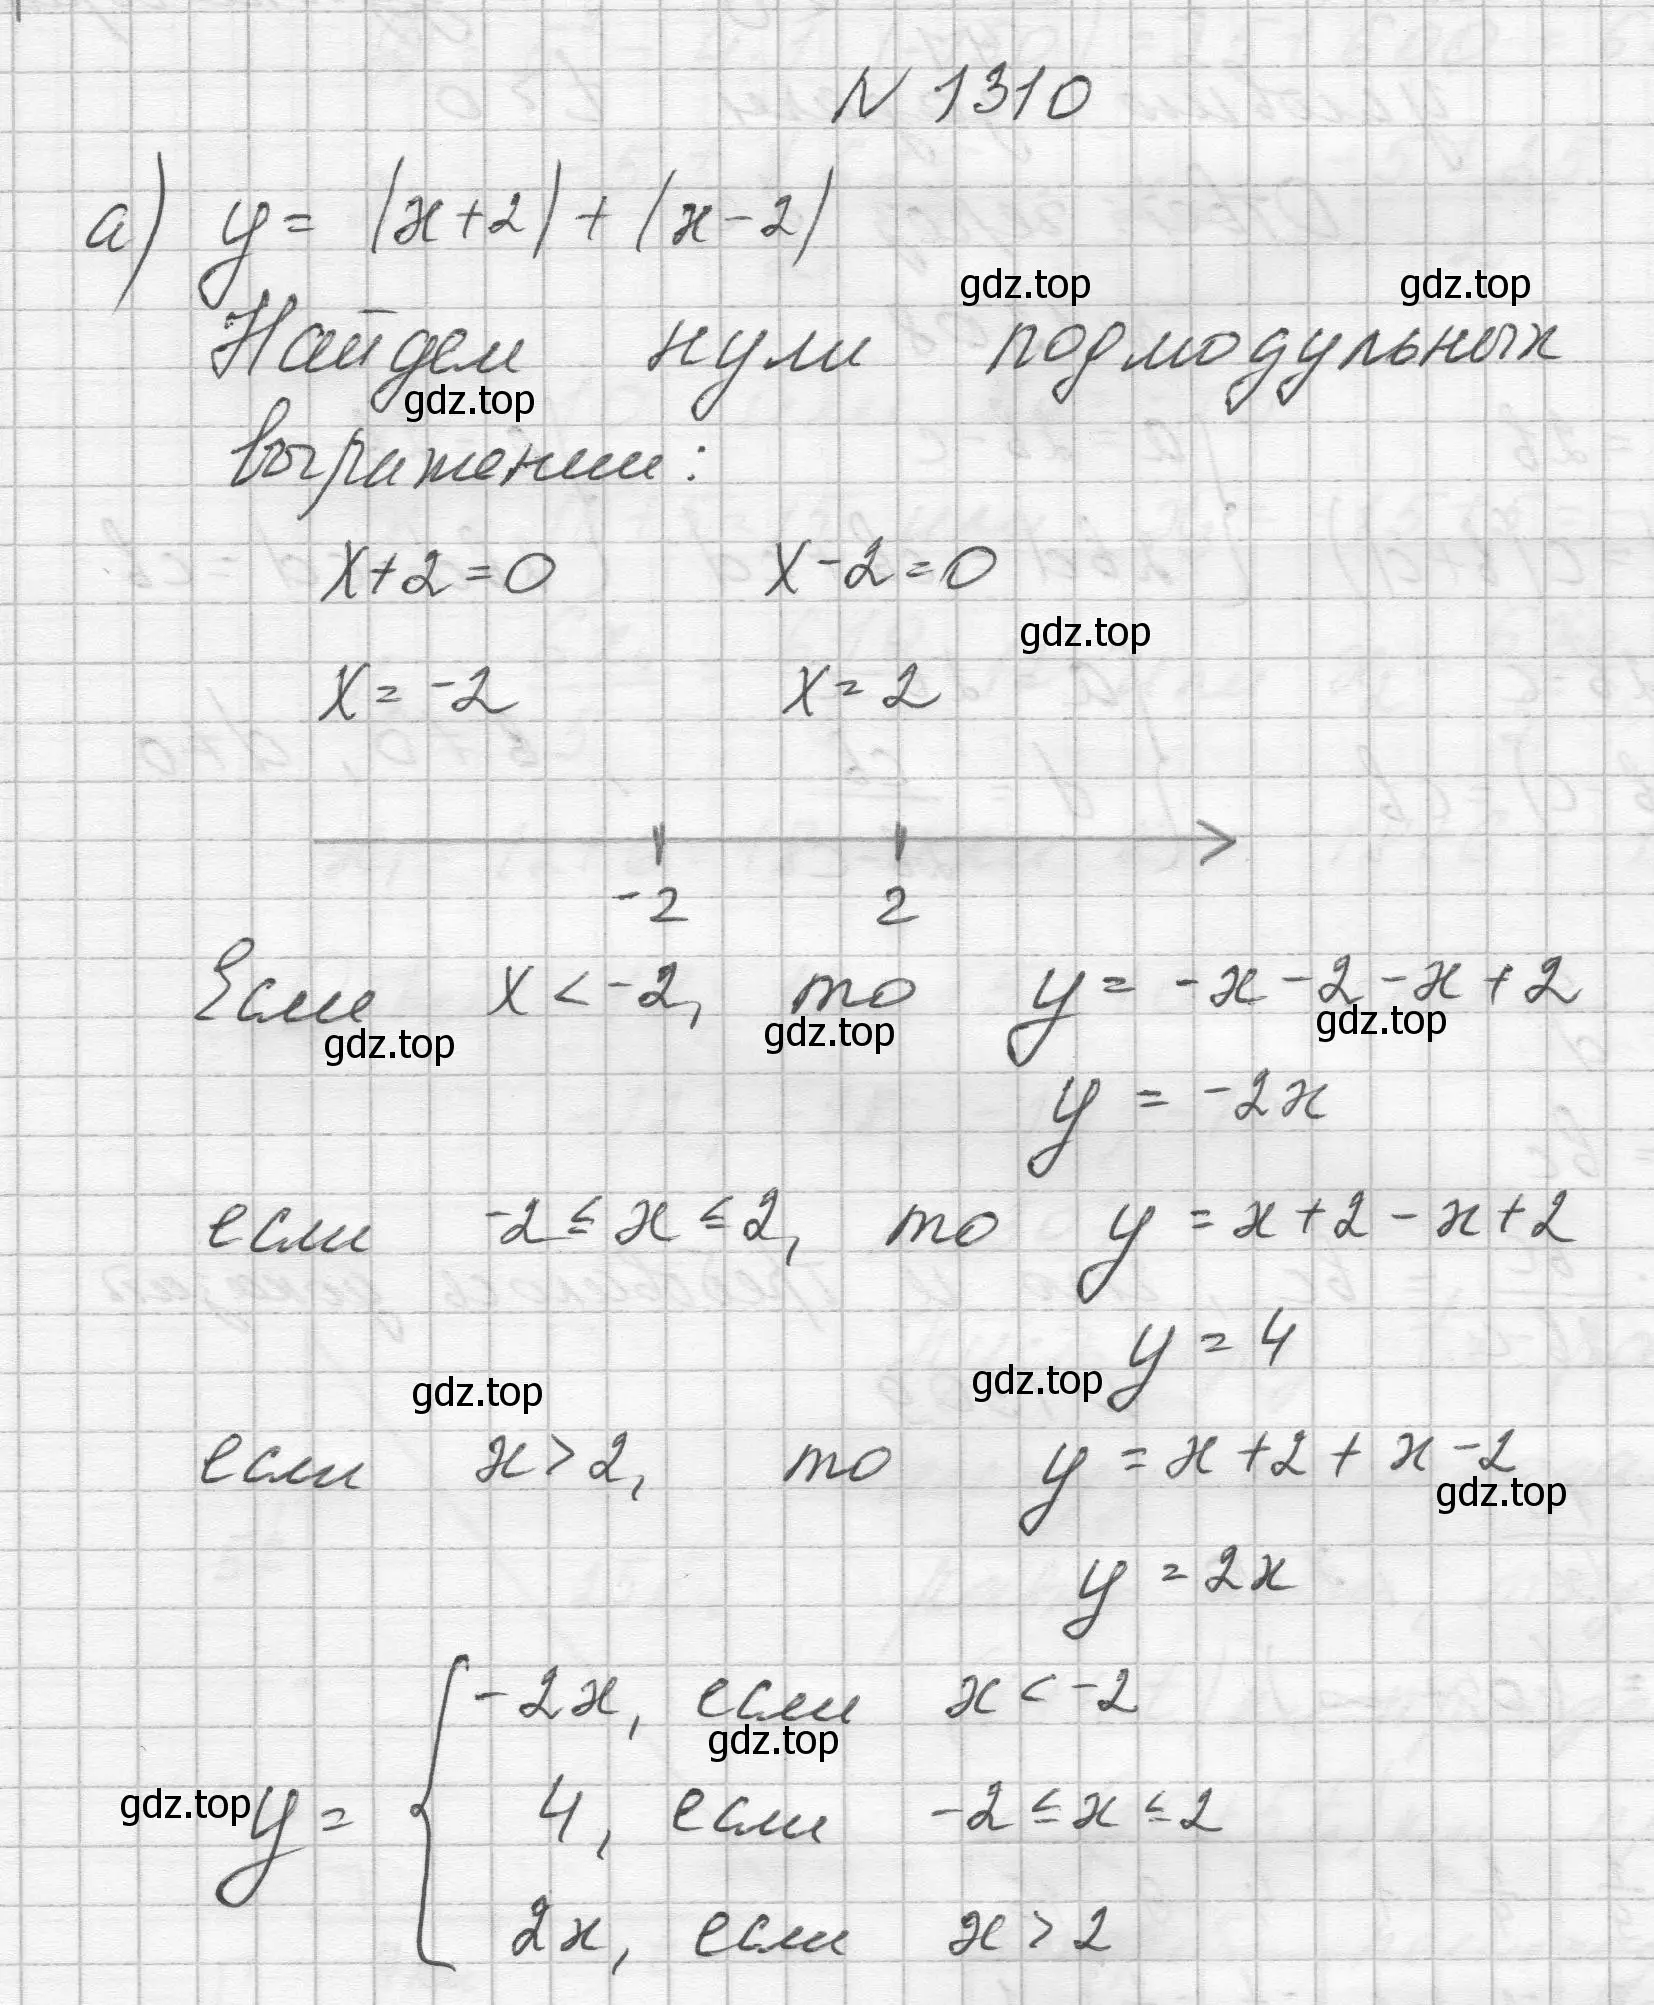 N 1310
а) y = |x+2| + |x-2|
gdz.top gdz.top
Найдем нули подмодульных
gdz.top
выражений:
x+2=0 x-2=0
gdz.top
x = -2 x = 2
-2 2
Если x < -2, то y = -x - 2 - x + 2
gdz.top gdz.top gdz.top
y = -2x
если -2 ≤ x ≤ 2, то y = x + 2 - x + 2
y = 4
gdz.top gdz.top
если x > 2, то y = x + 2 + x - 2
gdz.top
y = 2x
-2x, если x < -2
gdz.top
gdz.top y = { 4, если -2 ≤ x ≤ 2
2x, если x > 2